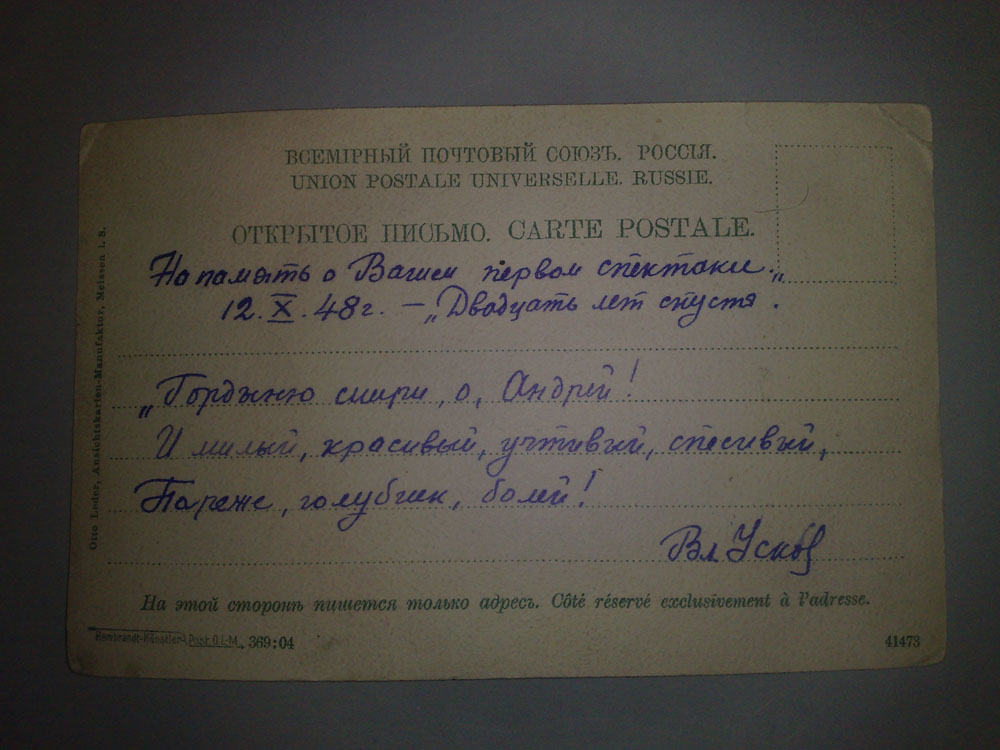 ВСЕМІРНЫЙ ПОЧТОВЫЙ СОЮЗЪ. РОССІЯ.
UNION POSTALE UNIVERSELLE. RUSSIE.
ОТКРЫТОЕ ПИСЬМО. CARTE POSTALE.
На память о Вашем первом спектакле.
12.X.48г. – „Двадцать лет спустя".
„Гордыню смири, о, Андрей!
И милый, красивый, учтивый, спесивый,
Пореже, голубчик, болей!
Вл Усков
На этой сторонѣ пишется только адресъ. Côté réservé exclusivement à l'adresse.
Rembrandt-Künstler-Post O.L-M. 369:04
41473
Otto Leder, Ansichtskarten-Manufaktur, Meissen i. S.